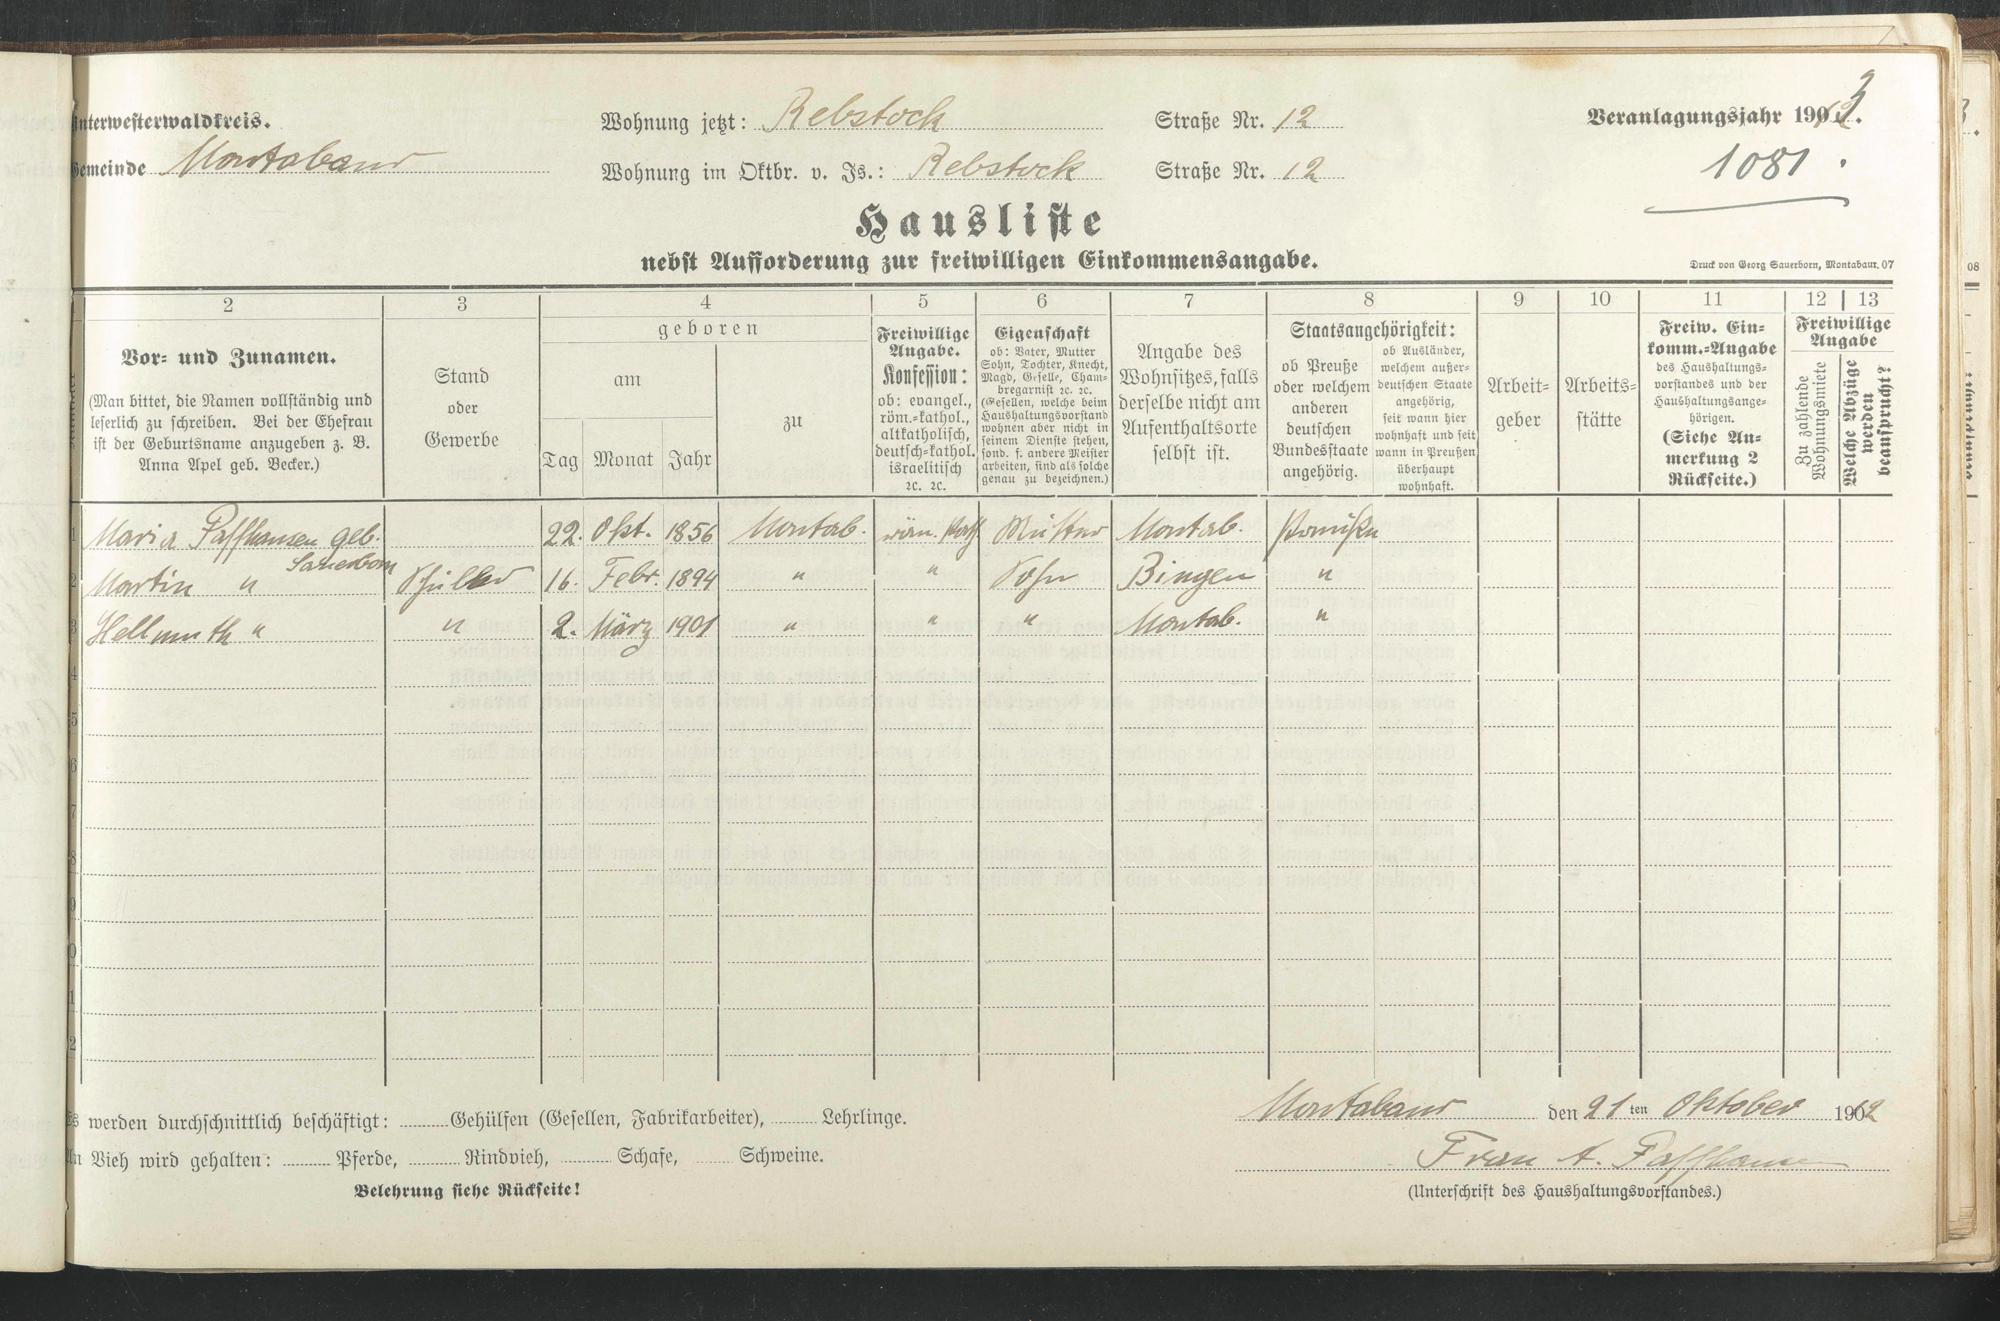 Unterwesterwaldkreis.
Gemeinde Montabaur
Wohnung jetzt: Rebstock Straße Nr. 12
Wohnung im Oktbr. v. Js.: Rebstock Straße Nr. 12
Veranlagungsjahr 1913.
1081.
Hausliste
nebst Aufforderung zur freiwilligen Einkommensangabe.
Druck von Georg Sauerborn, Montabaur. 07
08
2 3 4 5 6 7 8 9 10 11 12 13
Vor- und Zunamen.
(Man bittet, die Namen vollständig und
leserlich zu schreiben. Bei der Ehefrau
ist der Geburtsname anzugeben z. B.
Anna Apel geb. Becker.)
Stand
oder
Gewerbe
geboren
am
Tag Monat Jahr
zu
Freiwillige
Angabe.
Konfession:
ob: evangel.,
röm.-kathol.,
altkatholisch,
deutsch-kathol.
israelitisch
ꝛc. ꝛc.
Eigenschaft
ob: Vater, Mutter
Sohn, Tochter, Knecht,
Magd, Geselle, Cham-
bregarnist ꝛc. ꝛc.
(Gesellen, welche beim
Haushaltungsvorstand
wohnen aber nicht in
seinem Dienste stehen,
sond. f. andere Meister
arbeiten, sind als solche
genau zu bezeichnen.)
Angabe des
Wohnsitzes, falls
derselbe nicht am
Aufenthaltsorte
selbst ist.
Staatsangehörigkeit:
ob Preuße
oder welchem
anderen
deutschen
Bundesstaate
angehörig.
ob Ausländer,
welchem außer-
deutschen Staate
angehörig,
seit wann hier
wohnhaft und seit
wann in Preußen
überhaupt
wohnhaft.
Arbeit-
geber
Arbeits-
stätte
Freiw. Ein-
komm.-Angabe
des Haushaltungs-
vorstandes und der
Haushaltungsange-
hörigen.
(Siehe An-
merkung 2
Rückseite.)
Freiwillige
Angabe
Zu zahlende
Wohnungsmiete
Welche Abzüge
werden
beansprucht?
1 Maria Paffhausen geb. 22. Okt. 1856 Montab. röm. kath. Mutter Montab. Preußen
Sauerborn
2 Martin " Schüler 16. Febr. 1894 " " Sohn Bingen "
3 Hellmuth " " 2. März 1901 " " " Montab. "
4
5
6
7
8
9
0
1
2
Es werden durchschnittlich beschäftigt: Gehülfen (Gesellen, Fabrikarbeiter), Lehrlinge.
An Vieh wird gehalten: Pferde, Rindvieh, Schafe, Schweine.
Belehrung siehe Rückseite!
Montabaur den 21 ten Oktober 1912
Frau A. Paffhausen
(Unterschrift des Haushaltungsvorstandes.)